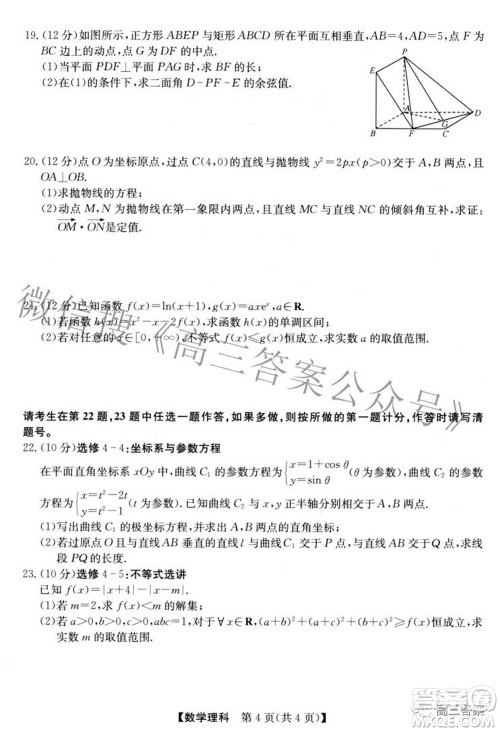 19.(12分)如图所示,正方形ABEP与矩形ABCD所在平面互相垂直,AB=4,AD=5,点F为
BC边上的动点,点G为DF的中点.
(1)当平面PDF⊥平面PAG时,求BF的长;
(2)在(1)的条件下,求二面角D-PF-E的余弦值.
P
E
A
D
G
B
F
C
20.(12分)点O为坐标原点,过点C(4,0)的直线与抛物线y²=2px(p>0)交于A,B两点,且
OA⊥OB.
(1)求抛物线的方程;
(2)动点M,N为抛物线在第一象限内两点,且直线CM与直线CN的倾斜角互补,求证:
OM·ON是定值.
21.(12分)已知函数f(x)=ln(x+1),g(x)=axeˣ,a∈R.
(1)若函数h(x)=x²-x-2f(x),求函数h(x)的单调区间;
(2)若对任意的x∈[0,+∞),不等式f(x)≤g(x)恒成立,求实数a的取值范围.
请考生在第22题,23题中任选一题作答,如果多做,则按所做的第一题计分,作答时请写清
题号。
22.(10分)选修4-4:坐标系与参数方程
在平面直角坐标系xOy中,曲线C₁的参数方程为{x=1+cosθ
y=sinθ(θ为参数),曲线C₂的参数
方程为{x=t²-2t
y=t²-t(t为参数),已知曲线C₂与x,y正半轴分别相交于A,B两点.
(1)写出曲线C₁的极坐标方程,并求出A,B两点的直角坐标;
(2)若过原点O且与直线AB垂直的直线l与曲线C₁交于P点,与直线AB交于Q点,求线
段PQ的长度.
23.(10分)选修4-5:不等式选讲
已知f(x)=|x+4|-|x-3|.
(1)若m=2,求f(x)<m的解集;
(2)若a>0,b>0,c>0,abc=1,对于∀x∈R,(a+b)²+(b+c)²+(a+c)²≥f(x)+m恒成
立,求实数m的取值范围.
【数学理科 第4页(共4页)】
微信搜《高三答案公众号》
高三答案